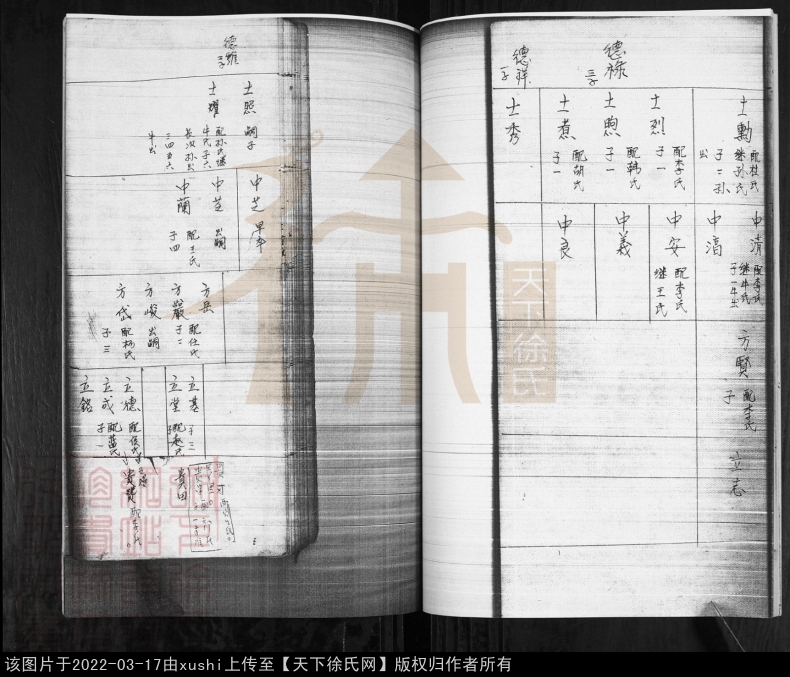 德祿
三子
德祥
一子
士勳
配杜氏
継孫氏
子二孫
出
士烈
配李氏
子一
士煦
配韩氏
子一
士煮
配胡氏
子一
士秀
中清
配李氏
継牛氏
子一牛出
中滈
中安
配李氏
継王氏
中義
中良
方賢
配李氏
子
立志
德雍
二子
士熙
嗣子
士耀
配孙氏継
牛氏子六
長次孙出
三四五六
牛出
中芝
早卒
中芝
出嗣
中蘭
配王氏
子四
方岳
方巖
配任氏
子二
方峻
出嗣
方岱
配杨氏
子三
立基
子三
立堂
配赵氏
立德
配侯氏
立成
配苗氏
子一
立銘
貴田
天下徐氏
该图片于2022-03-17由xushi上传至【天下徐氏网】版权归作者所有